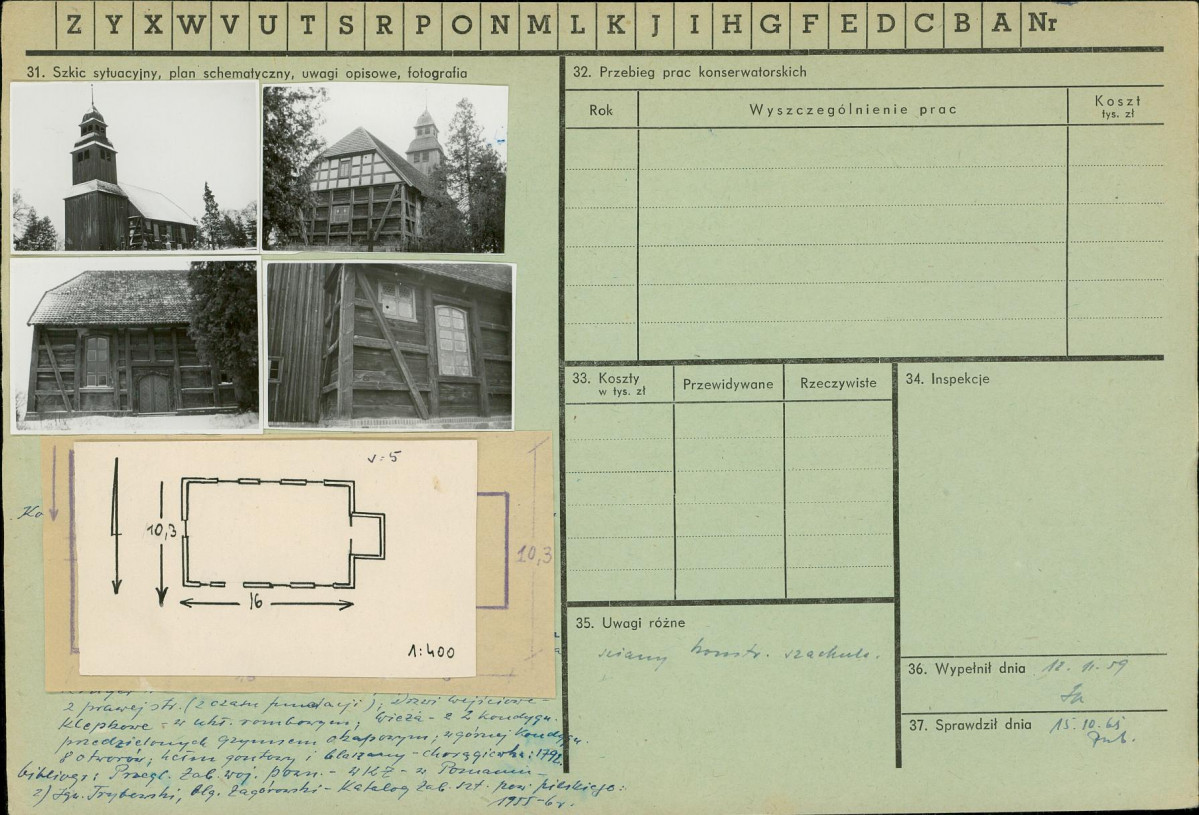 Z Y X W V U T S R P O N M L K J I H G F E D C B A Nr
31. Szkic sytuacyjny, plan schematyczny, uwagi opisowe, fotografia
v:5
10,3
16
1:400
10,3
Ko
z prawej str. (z czasu fundacji); Drzwi wejściowe -
klepkowe - w ukł. rombowym; wieża - z 2 kondygn.
przedzielonych gzymsem okapowym; w górnej kondygn.
8 otworów; hełm gontowy i blaszany - chorągiewka: 1792.
bibliogr: Przegl. Zab. woj. pozn. - WKZ - w Poznaniu -
2) Katalog Zab. szt. pow. pilskiego:
1955-6 r.
32. Przebieg prac konserwatorskich
Rok
Wyszczególnienie prac
Koszt
tys. zł
33. Koszty
w tys. zł
Przewidywane
Rzeczywiste
34. Inspekcje
35. Uwagi różne
ściany konstr. szachul.
36. Wypełnił dnia 12.11.59
37. Sprawdził dnia 15.10.65